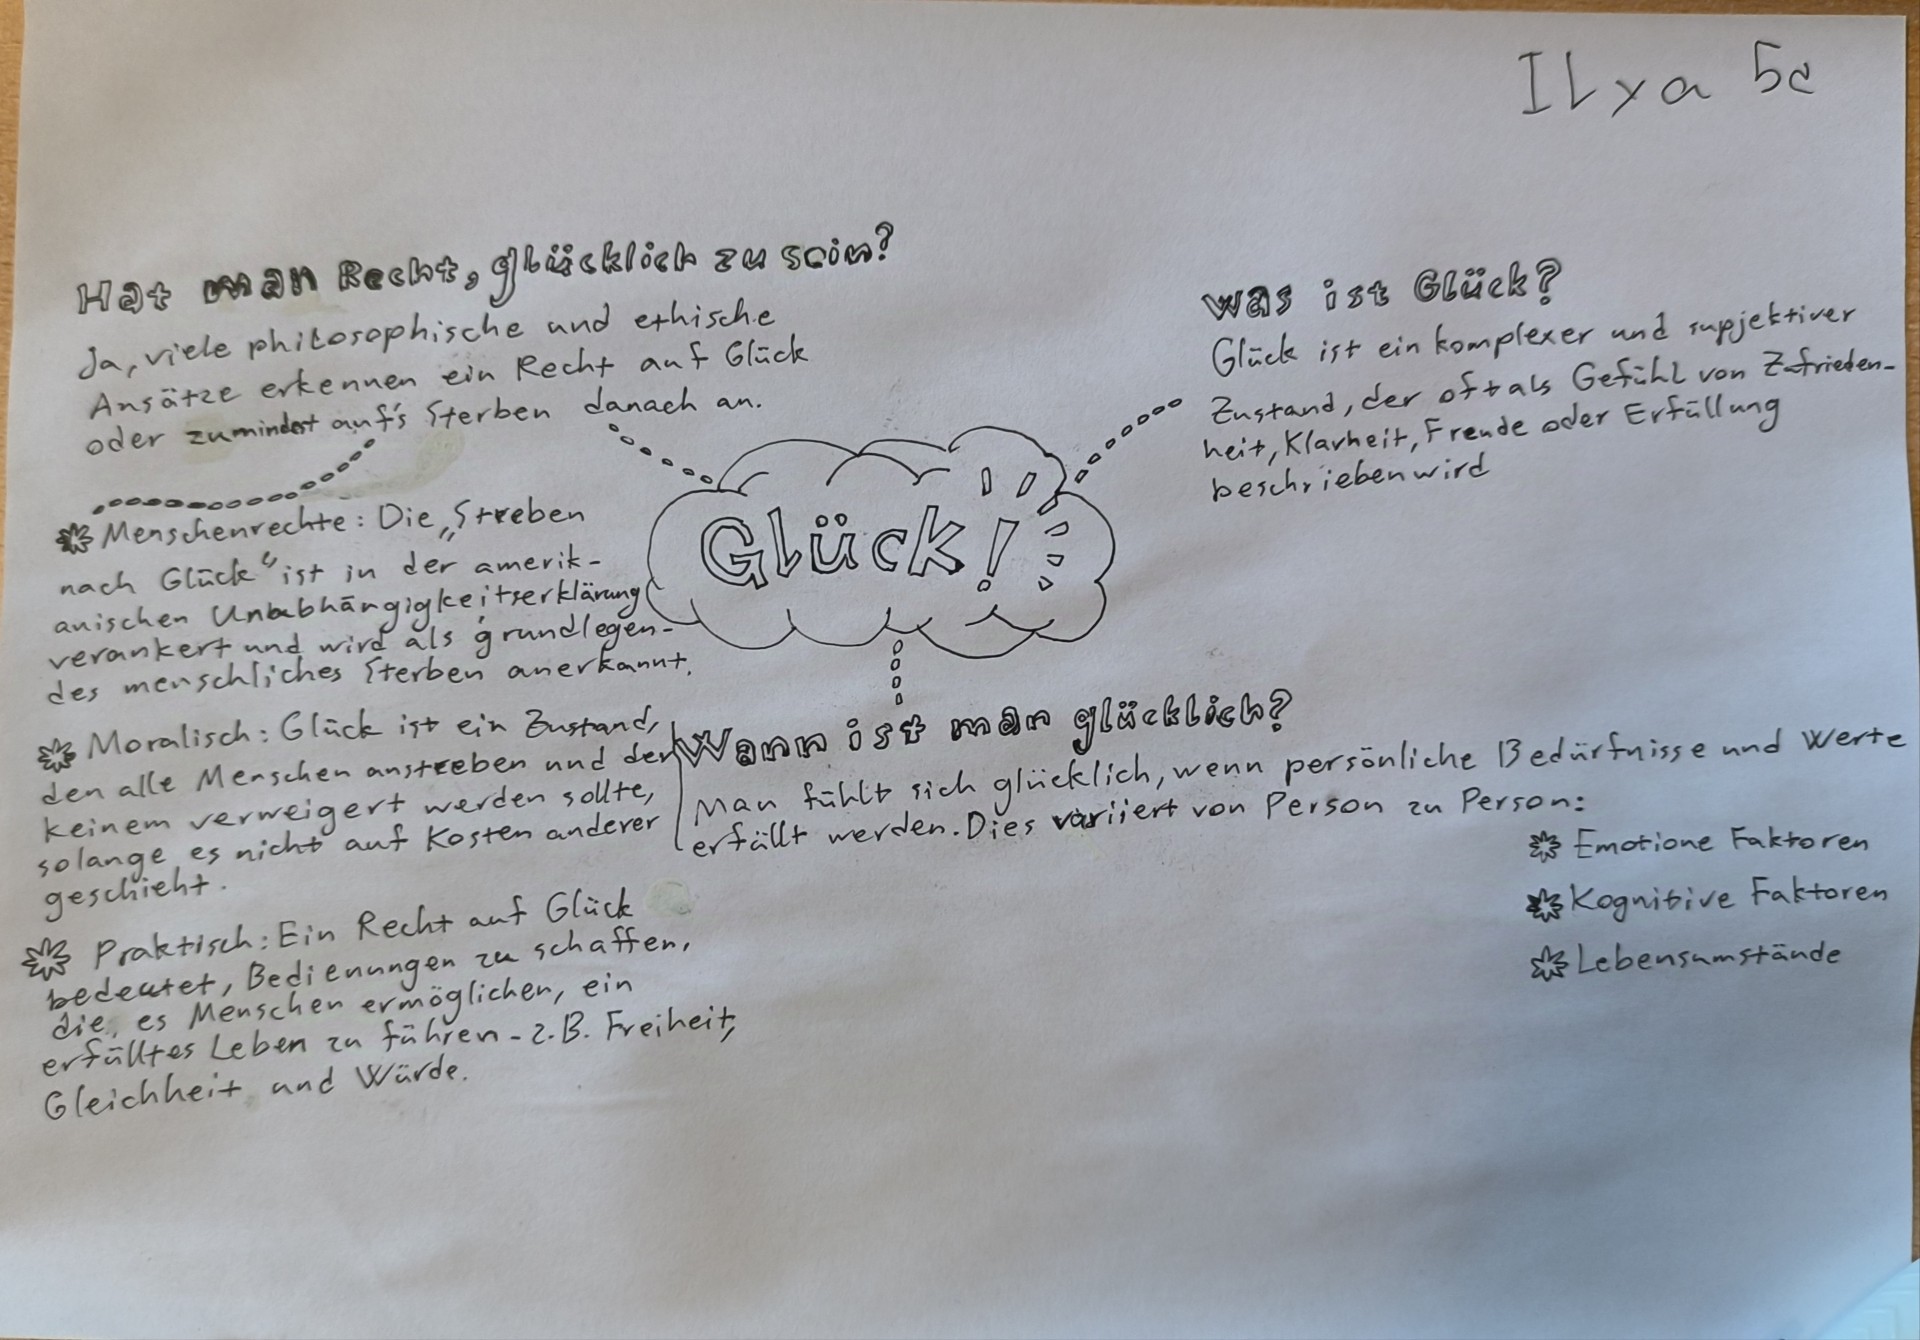 Ilya 5c
Hat man Recht, glücklich zu sein?
Ja, viele philosophische und ethische
Ansätze erkennen ein Recht auf Glück
oder zumindest auf's Sterben danach an.
Menschenrechte: Die „Streben
nach Glück“ ist in der amerik-
anischen Unabhängigkeitserklärung
verankert und wird als grundlegen-
des menschliches Sterben anerkannt.
Moralisch: Glück ist ein Zustand,
den alle Menschen anstreben und der
keinem verweigert werden sollte,
solange es nicht auf Kosten anderer
geschieht.
Praktisch: Ein Recht auf Glück
bedeutet, Bedienungen zu schaffen,
die, es Menschen ermöglichen, ein
erfülltes Leben zu führen - z.B. Freiheit,
Gleichheit und Würde.
Glück!
Was ist Glück?
Glück ist ein komplexer und supjektiver
Zustand, der oft als Gefühl von Zufrieden-
heit, Klarheit, Freude oder Erfüllung
beschrieben wird
Wann ist man glücklich?
Man fühlt sich glücklich, wenn persönliche Bedürfnisse und Werte
erfüllt werden. Dies variiert von Person zu Person:
Emotione Faktoren
Kognitive Faktoren
Lebensumstände